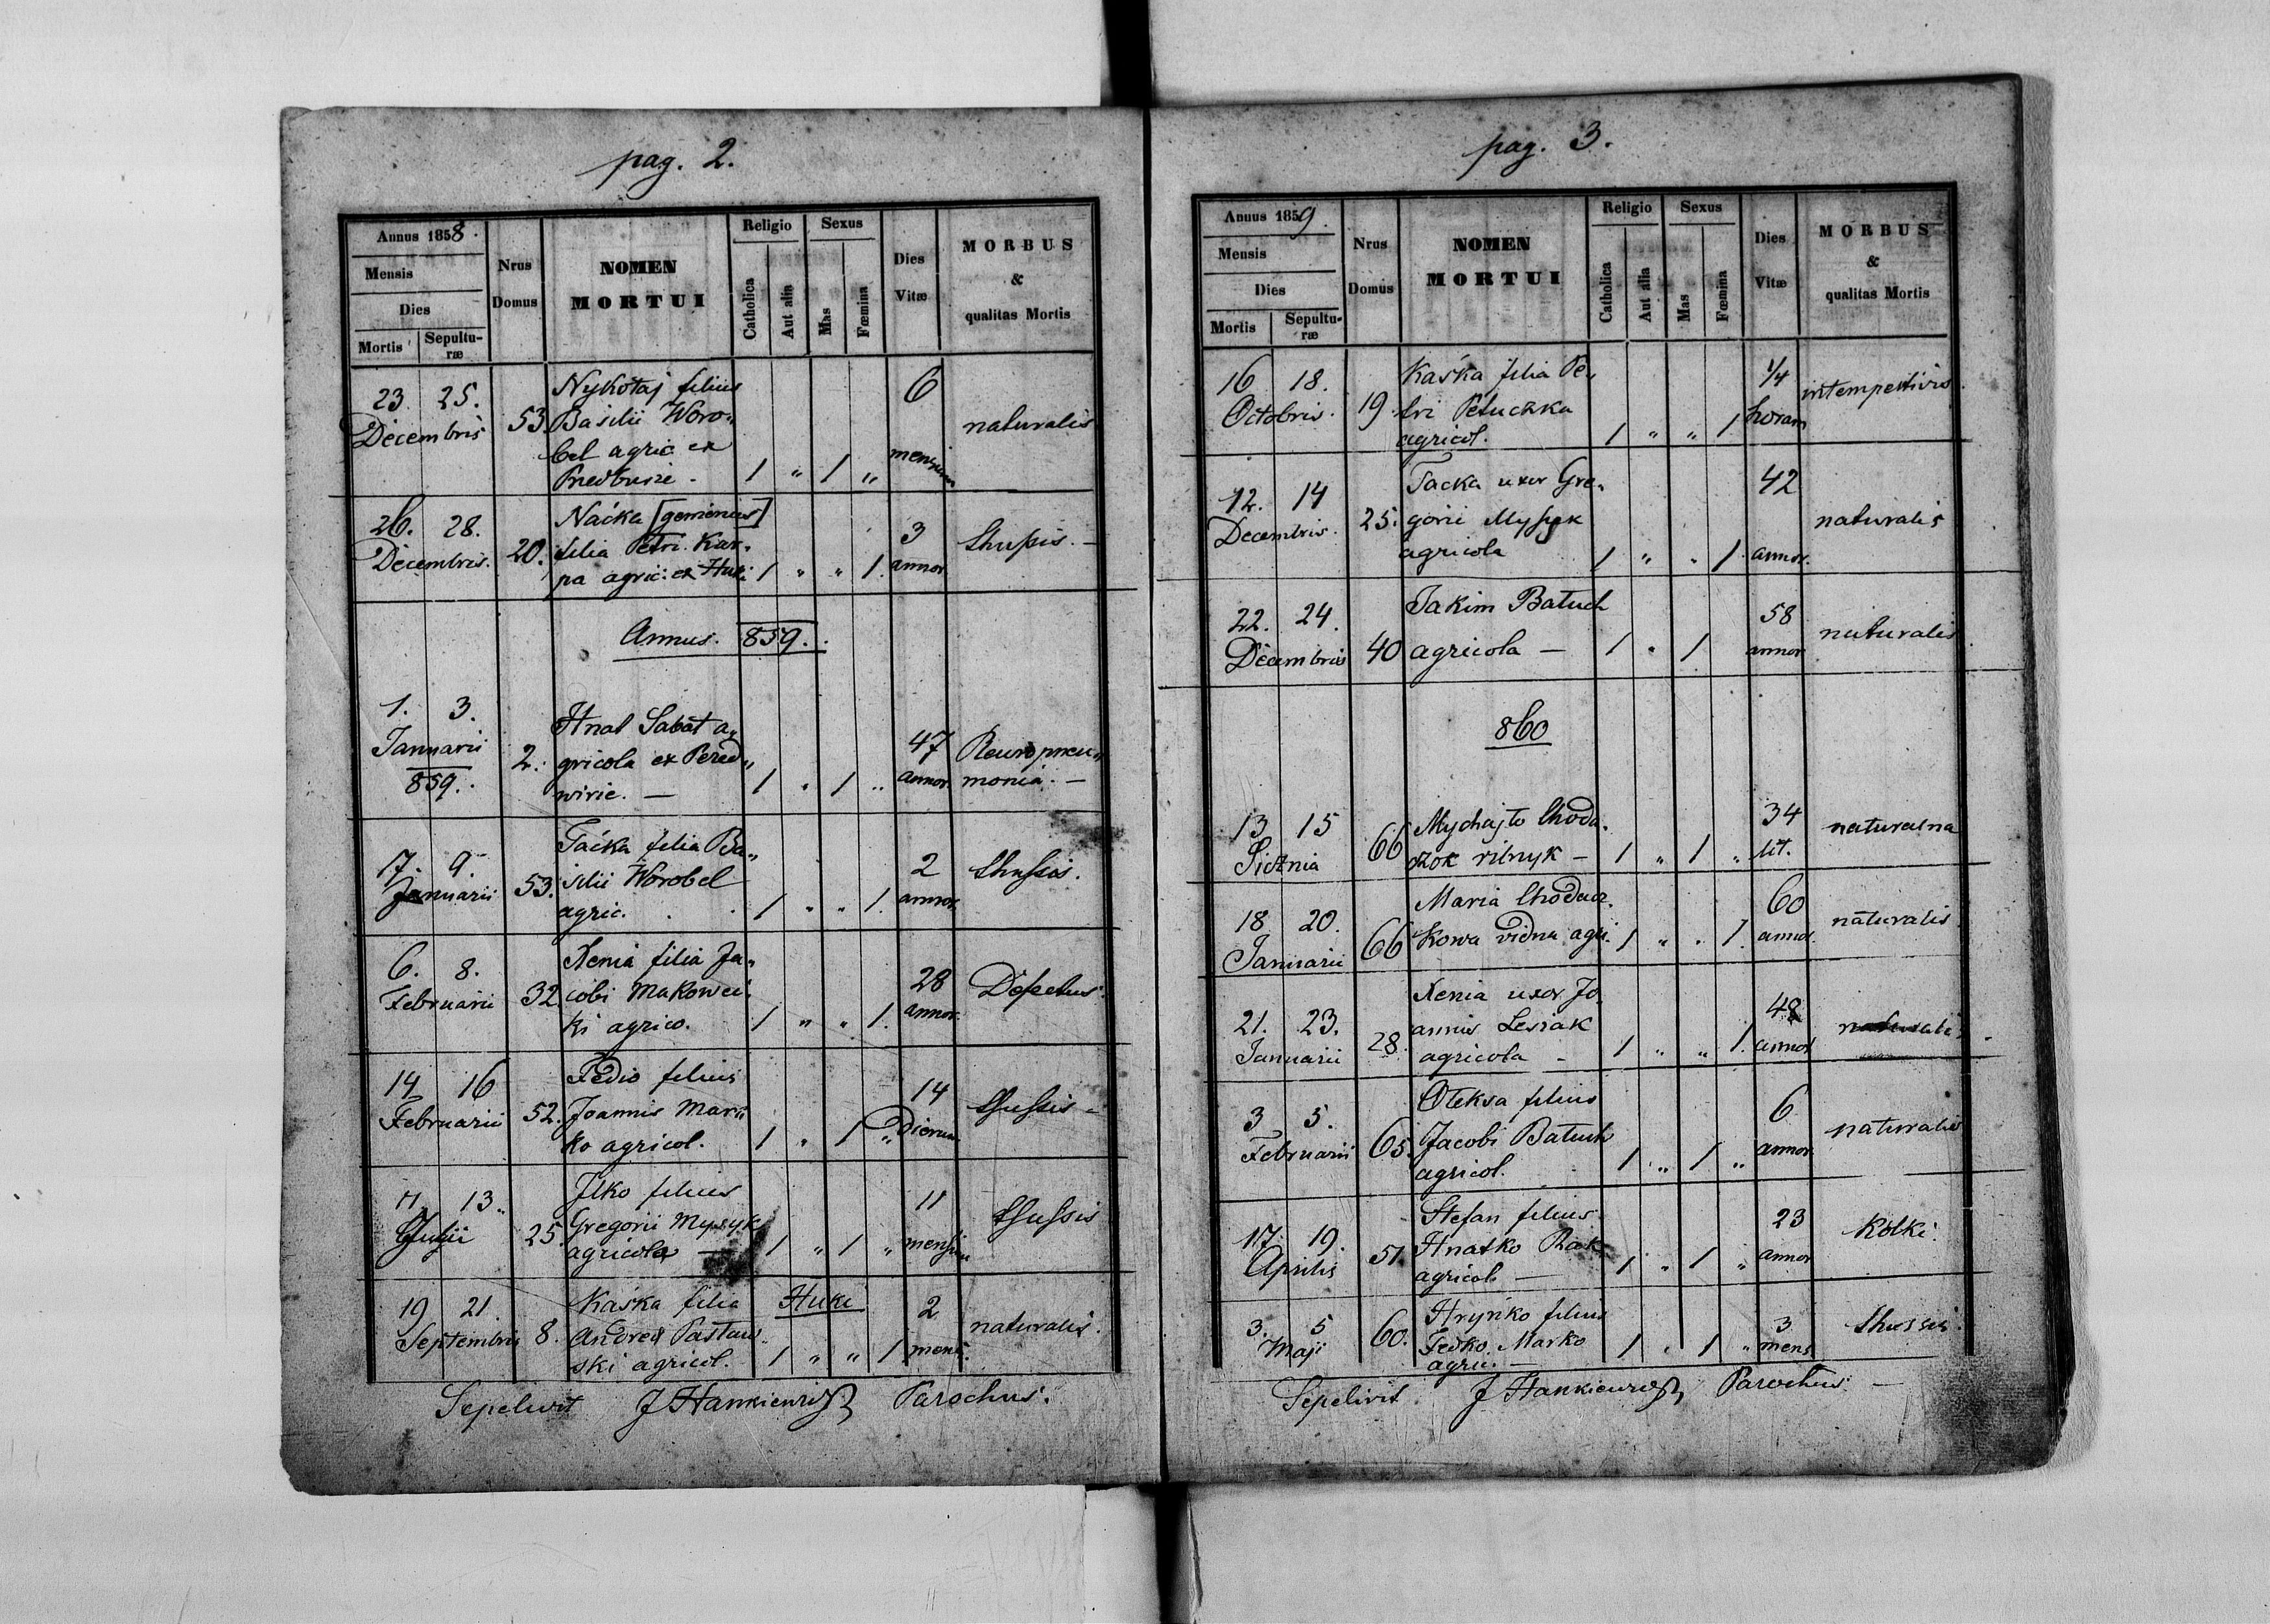 pag. 2.
Annus 1858.
Mensis
Dies
Mortis
Sepultu-
ræ
Nrus
Domus
NOMEN
MORTUI
Religio
Catholica
Aut alia
Sexus
Mas
Fœmina
Dies
Vitæ
MORBUS
&
qualitas Mortis
23. 25.
Decembris
53.
Nykołaj filius
Basilii Woro„
bel agric. ex
1 „ 1 „
6
mensium
naturalis
26. 28.
Decembris.
20.
Naćka [gemenius]
filia Petri Kar„
pa agric. ex Huki
1 „ „ 1.
3
annor.
thussis. –
Annus. 859.
1. 3.
Januarii
859.
2.
Hnat Sabat a„
gricola ex Pered„
wirie. –
1 „ 1 „
47
annor.
monia. –
17. 9.
Januarii
53.
Taćka filia Ba„
silii Worobel
agric.
1 „ „ 1.
2
annor.
thussis.
6. 8.
Februarii
32
Xenia filia Ja„
cobi Makowei„
ki agrico.
1 „ „ 1.
28
annor.
Defectus.
14 16
Februarii
52.
Fedio filius
Joannis Mar„
ko agricol.
1 „ 1 „
14
Dierum
thussis –
11 13„
25.
Ilko filius
Gregorii Mysyk
agricola –
1 „ 1 „
11
mensium
thussis
19 21.
Septembris
8.
Kaśka filia
Andreæ Pastaw„
ski agricol.
Huki
1 „ „ 1
2
mens.
naturalis.
Sepelivit J Hankiewicz Parochus.
pag. 3.
Annus 1859.
Mensis
Dies
Mortis
Sepultu-
ræ
Nrus
Domus
NOMEN
MORTUI
Religio
Catholica
Aut alia
Sexus
Mas
Fœmina
Dies
Vitæ
MORBUS
&
qualitas Mortis
16 18.
Octobris.
19.
Kaśka filia Pe„
tri Petuchka
agricol.
1 „ „ 1
1/4
horam
intempestivis.
12. 14
Decembris.
25.
Tacka uxor Gre„
gorii Mysyk
agricola
1 „ „ 1.
42
annor.
naturalis
22. 24.
Decembris
40
Jakim Batuch
agricola –
1 „ 1
58
annor
naturalis
860
13 15
Sicznia
66
Mychajło Choda„
czok rilnyk –
1 „ 1 „
34
lit.
naturalna
18 20.
Januarii
66
Maria Chodacz„
kowa vidna agri.
1 „ „ 1.
60
annor.
naturalis
21. 23.
Januarii
28.
Xenia uxor Jo„
annis Lesiak
agricola –
1 „ „ 1.
48
annor
naturalis.
3 5.
Februarii
65.
Ołeksa filius
Jacobi Batuch
agricol.
1 „ 1 „
6
annor
naturalis
17 19.
Aprilis
51.
Stefan filius
Hnatko Rak
agricol. –
1 „ 1 „
23
annor
Kolki.
3. 5
Maji
60.
Hryńko filius
Fedko Marko
agric. –
1 „ 1 „
3
mens
thussis.
Sepelivit J Hankiewicz Parochus. –